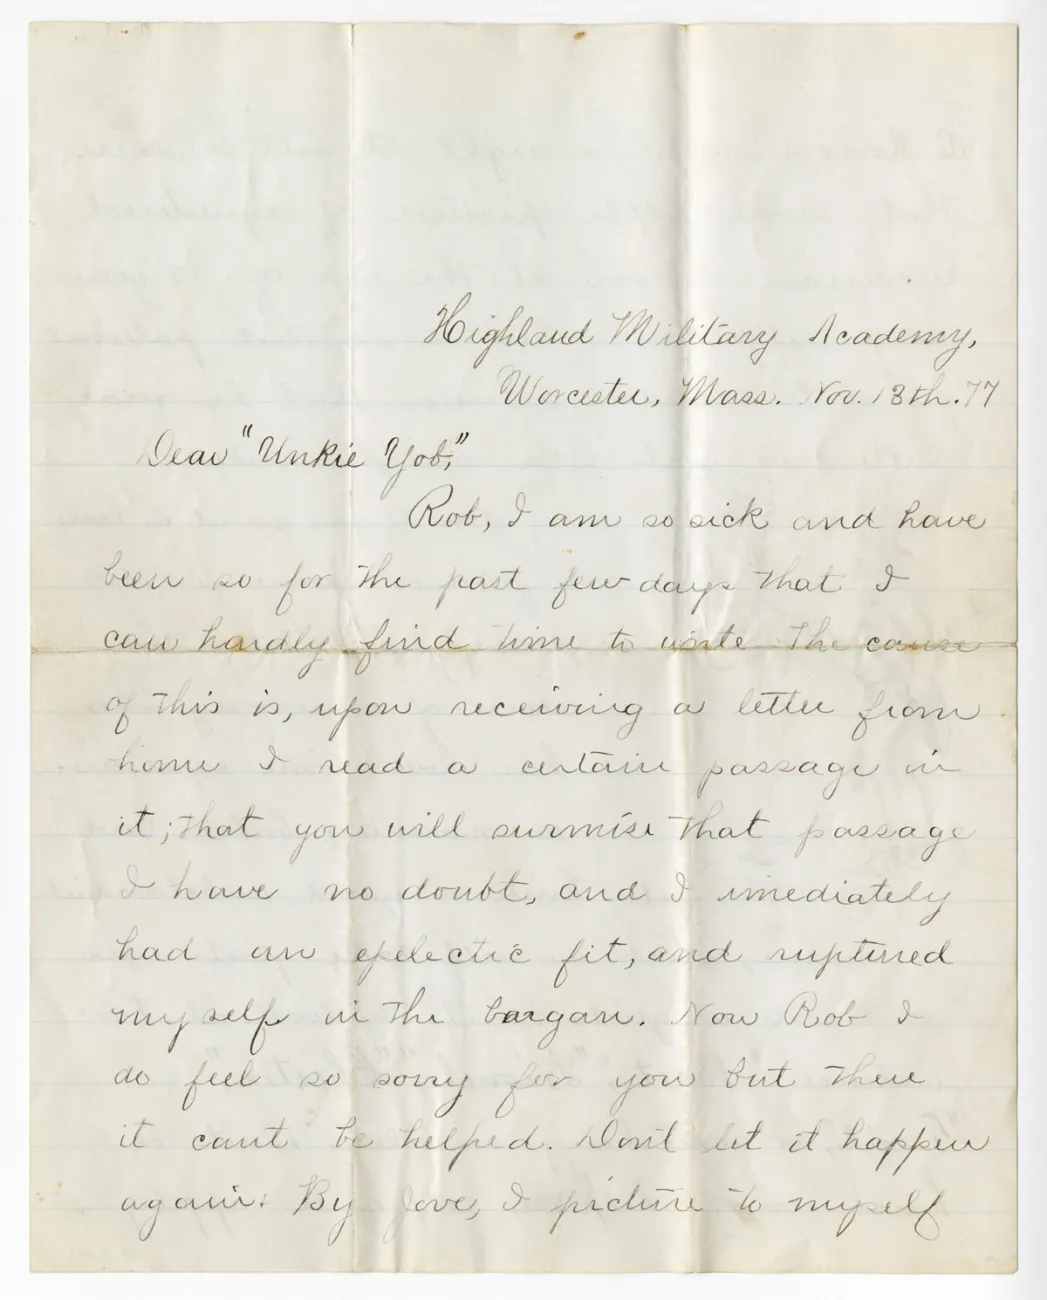 Highland Military Academy,
Worcester, Mass. Nov. 13th. 77
Dear "Unkie Yob,"
Rob, I am so sick and have
been so for the past few days that I
can hardly find time to write the cause
of this is, upon receiving a letter from
home I read a certain passage in
it; that you will surmise that passage
I have no doubt, and I imediately
had an epelectic fit, and ruptured
myself in the bargan. Now Rob I
do feel so sorry for you but there
it cant be helped. Don't let it happen
again. By Jove, I picture to myself